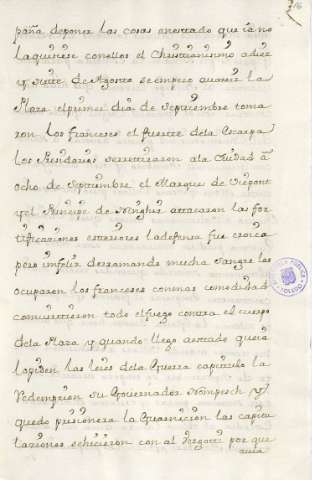 76
paña deponer las cosas enestado que ia no
la quisiese con ellos el Christianisimo adiez
y siete de Agosto se empezo abatir la
Plaza el primer dia de Septiembre toma
ron los franceses el fuerte dela Escarpa
los Rendidos se retiraron ala Ciudad a
ocho de Septiembre el Marques de
y el Principe de atacaron las for
tificaciones exteriores la defensa fue eroica
pero infeliz derramando mucha sangre los
ocuparon los franceses con mas comodidad
combirtieron todo el fuego contra el cuerpo
dela Plaza y quando llego aestado que
las leies dela Guerra capitulo la
Redempcion su Governador y
quedo prisionera la Guarnicion las capitu
laziones se hicieron con al por que
avia
TOLEDO